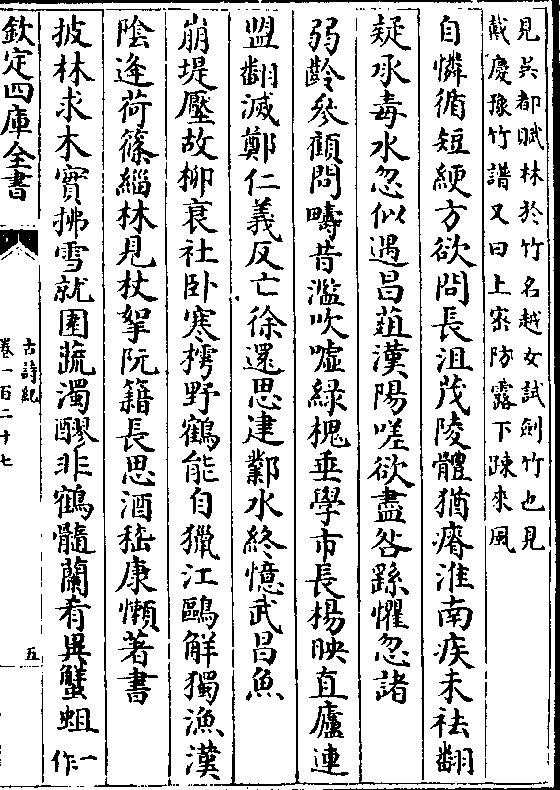 見吳都賦林於竹名越女試劍竹也見
戴慶豫竹譜又曰上宻防露下踈來風
自憐循短綆方欲問長沮茂陵體猶瘠淮南疾未祛翻
疑承毒水忽似遇昌葅漢陽嗟欲盡咎繇懼忽諸
弱齡參顧問疇昔濫吹噓緑槐垂學市長楊映直廬連
盟翻滅鄭仁義反亡徐還思建鄴水終憶武昌魚
崩堤壓故柳衰社卧寒樗野鶴能自獵江鷗解獨漁漢
陰逢荷篠緇林見杖挐阮籍長思酒嵇康懶著書
披林求木實拂雪就園蔬濁醪非鶴髓蘭肴異蟹蛆一作
欽定四庫全書
古詩紀
卷一百二十七
五